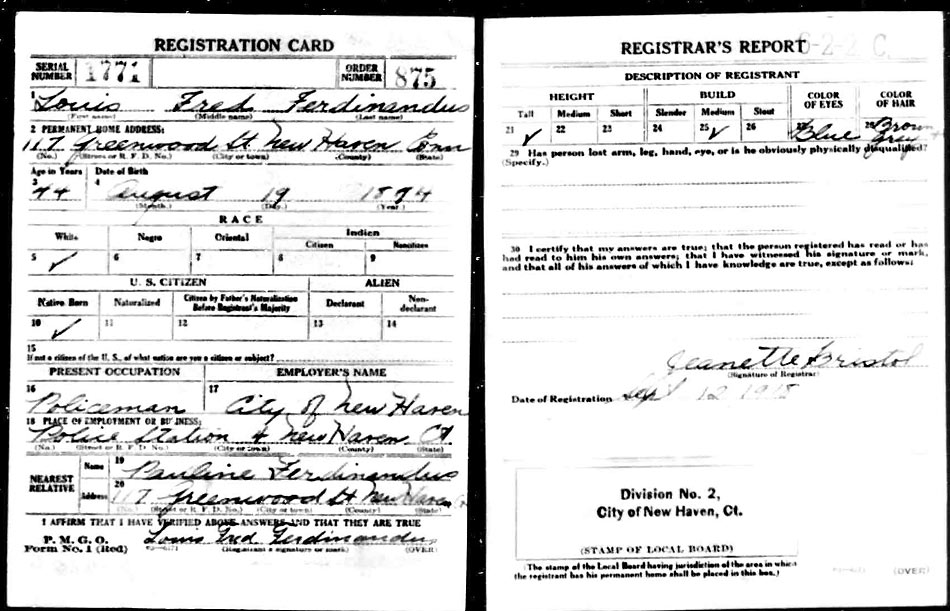 REGISTRATION CARD
SERIAL NUMBER 1771
ORDER NUMBER 875
1 Louis Fred Ferdinandus
(First name) (Middle name) (Last name)
2 PERMANENT HOME ADDRESS:
117 Greenwood St New Haven Conn
(No.) (Street or R. F. D. No.) (City or town) (County) (State)
Age in Years Date of Birth
3 44 4 August 19 1874
(Month.) (Day.) (Year.)
RACE
White Negro Oriental Indian
Citizen Noncitizen
5 ✓ 6 7 8 9
U. S. CITIZEN ALIEN
Native Born Naturalized Citizen by Father's Naturalization Before Registrant's Majority Declarant Non-declarant
10 ✓ 11 12 13 14
15
If not a citizen of the U. S., of what nation are you a citizen or subject?
PRESENT OCCUPATION EMPLOYER'S NAME
16 Policeman 17 City of New Haven
18 PLACE OF EMPLOYMENT OR BUSINESS:
Police Station New Haven Ct.
(No.) (Street or R. F. D. No.) (City or town) (County) (State)
NEAREST RELATIVE
Name 19 Pauline Ferdinandus
Address 20 117 Greenwood St New Haven
(No.) (Street or R. F. D. No.) (City or town) (County) (State)
I AFFIRM THAT I HAVE VERIFIED ABOVE ANSWERS AND THAT THEY ARE TRUE
P. M. G. O.
Form No. 1 (Red) Louis Fred Ferdinandus
(Registrant's signature or mark) (OVER)
REGISTRAR'S REPORT
6-2-2 C
DESCRIPTION OF REGISTRANT
HEIGHT BUILD COLOR OF EYES COLOR OF HAIR
Tall Medium Short Slender Medium Stout
21 ✓ 22 23 24 25 ✓ 26 27 Blue 28 Brown Gray
29 Has person lost arm, leg, hand, eye, or is he obviously physically disqualified?
(Specify.)
30 I certify that my answers are true; that the person registered has read or has
had read to him his own answers; that I have witnessed his signature or mark,
and that all of his answers of which I have knowledge are true, except as follows:
Jeanette Bristol
(Signature of Registrar)
Date of Registration Sept 12 1918
Division No. 2,
City of New Haven, Ct.
(STAMP OF LOCAL BOARD)
(The stamp of the Local Board having jurisdiction of the area in which
the registrant has his permanent home shall be placed in this box.)
(OVER)